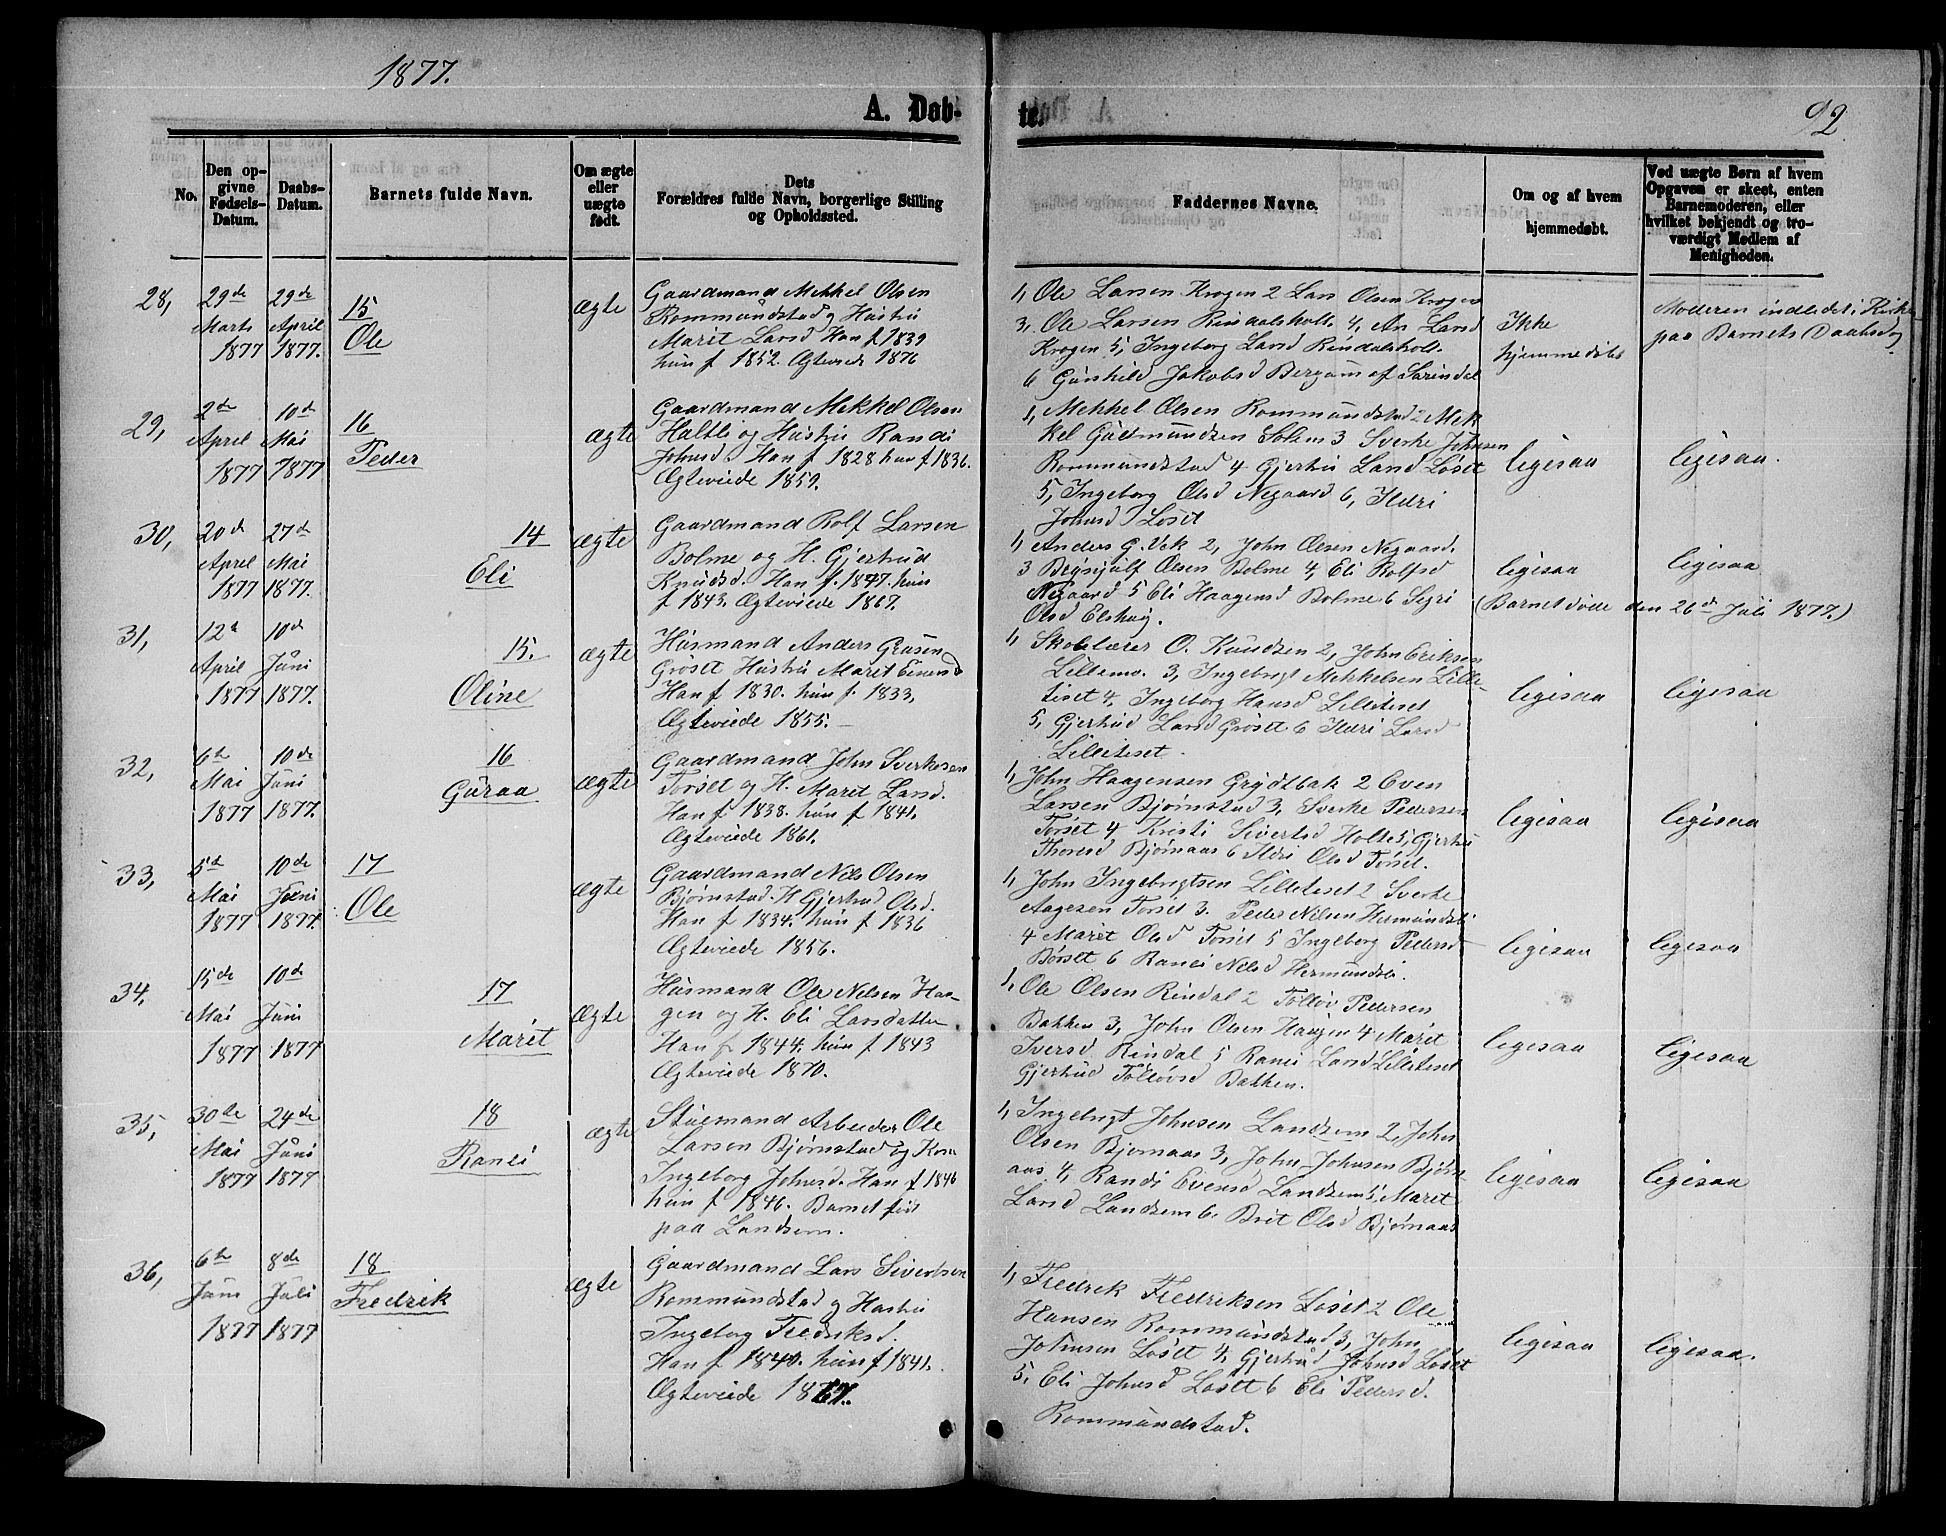 1877.
A. Døb-
te.
92
No.
Den op-
givne
Fødsels-
Datum.
Daabs-
Datum.
Barnets fulde Navn.
Om ægte
eller
uægte
født.
Dets
Forældres fulde Navn, borgerlige Stilling
og Opholdssted.
Faddernes Navne.
Om og af hvem
hjemmedøbt.
Ved uægte Børn af hvem
Opgaven er skeet, enten
Barnemoderen, eller
hvilket bekjendt og tro-
værdigt Medlem af
Menigheden.
28,
29de
Marts
1877
29de
April
1877.
15
Ole
ægte
Gaardmand Mekkel Olsen
Rommundstad og Hustru
Marit Larsd Han f. 1839
hun f 1852. Ægteviede 1876
1, Ole Larsen Krogen 2 Lars Olsen Krogen
3, Ole Larsen Rindalsholt. 4, An Larsd
Krogen 5, Ingeborg Larsd Rindalsholt.
6 Gunhild Jakobsd Bergum af Surendal
Ikke
hjemmedøbt
Moderen indledet i Kirke
paa Barnets Daabsdag
29,
2de
April
1877
10de
Mai
1877
16
Peder
ægte
Gaardmand Mekkel Olsen
Haltli og Hustru Randi
Johnsd. Han f 1828 hun f 1836.
Ægteviede 1859.
1, Mekkel Olsen Rommundstad 2 Mek
kel Gudmundsen Solem 3 Sverke Johnsen
Rommundstad 4 Gjertru Larsd Løset
5, Ingeborg Olsd Negaard 6, Ildri
Johnsd Løset
ligesaa
ligesaa.
30,
20de
April
1877
27de
Mai
1877.
14
Eli
ægte
Gaardmand Rolf Larsen
Bolme og H. Gjertrud
Knudsd. Han f. 1847. hun
f 1843. Ægteviede 1867.
1, Anders G. Vek 2, John Olsen Negaard.
3 Begnjulf Olsen Bolme 4, Eli Rolfsd
Negaard 5 Eli Haagensd Bolme 6 Sigri
Olsd Elshaug.
ligesaa
ligesaa
(Barnet døde den 26de Juli 1877.)
31,
12te
April
1877
10de
Juni
1877.
15.
Oline
ægte
Husmand Anders Grusen
Grøset Hustru Marit Einersd
Han f 1830. hun f. 1833,
Ægteviede 1855.
1, Skolelærer O. Knudsen 2, John Eriksen
Lillemo. 3, Ingebrigt Mekkelsen Lille-
tiset 4, Ingeborg Hansd Lilletiset
5, Gjertrud Larsd Grøset 6 Ildri Larsd
Lilletiset.
ligesaa
ligesaa
32,
6te
Mai
1877
10de
Juni
1877.
16
Guraa
ægte
Gaardmand John Sverkesen
Torset og H. Marit Larsd.
Han f 1838. hun f 1841.
Ægteviede 1861.
1, John Haagensen Grydtbak 2 Even
Larsen Bjørnstad 3, Sverke Pedersen
Torset 4 Kristi Sivertsd Holte 5, Gjertru
Thoresd Bjørnaas 6 Ildri Olsd Torset.
ligesaa
ligesaa
33,
5te
Mai
1877
10de
Juni
1877.
17
Ole
ægte
Gaardmand Nils Olsen
Bjørnstad. H Gjertrud Olsd.
Han f 1834. hun f 1836
Ægteviede 1856.
1, John Ingebrigtsen Lilletiset 2 Sverke
Aagesen Torset 3. Peder Nilsen Hermundsli
4 Marit Olsd Torset 5 Ingeborg Pedersd
Børset 6 Ranei Nilsd Hermundsli.
ligesaa
ligesaa
34,
15de
Mai
1877
10de
Juni
1877
17
Marit
ægte
Husmand Ole Nilsen Hau-
gen og H. Eli Larsdatter
Han f 1844. hun f 1843
Ægteviede 1870.
1, Ole Olsen Rindal 2 Tolløv Pedersen
Bakken 3, John Olsen Haugen 4 Marit
Iversd Rindal 5 Ranei Larsd Lilletiset
Gjertrud Tolløvsd Bakken.
ligesaa
ligesaa
35,
30te
Mai
1877
24de
Juni
1877
18
Ranei
ægte
Stuemand Arbeider Ole
Larsen Bjørnstad og Kone
Ingeborg Johnsd. Han f 1846
hun f 1846. Barnet født
paa Landsem.
1, Ingebrigt Johnsen Landsem 2, John
Olsen Bjørnaas 3, John Johnsen Bjørn-
aas 4, Randi Evensd Landsem 5, Marit
Larsd Landsem 6. Brit Olsd Bjørnaas
ligesaa
ligesaa
36,
6te
Juni
1877
8de
Juli
1877
18
Fredrik
ægte
Gaardmand Lars Sivertsen
Rommundstad og Hustru
Ingeborg Fredriksd.
Han f 1840. hun f 1841.
Ægteviede 1867.
1, Fredrik Fredriksen Løset 2 Ole
Hansen Rommundstad 3, John
Johnsen Løset 4, Gjertrud Johnsd Løset
5, Eli Johnsd Løset 6 Eli Pedersd.
Rommundstad.
ligesaa
ligesaa.